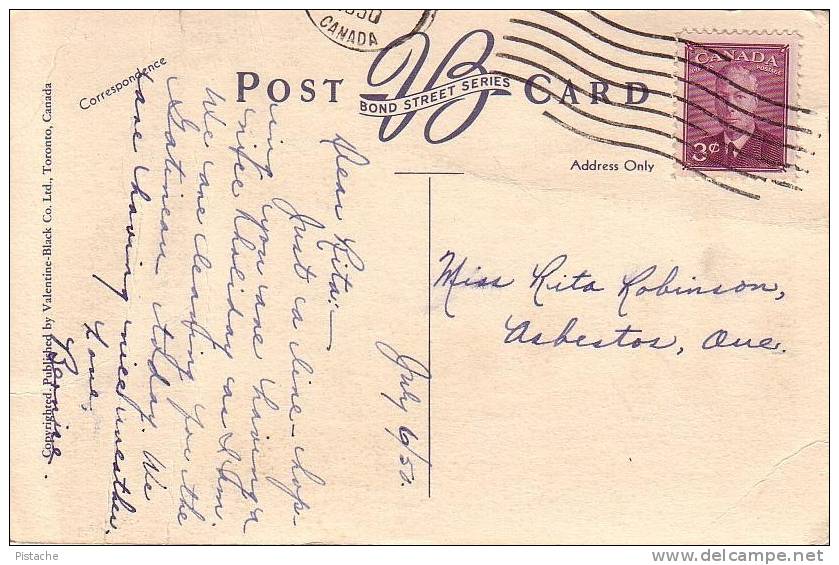 1950
CANADA
Correspondence
POST CARD
VB
BOND STREET SERIES
CANADA
3¢
Address Only
Copyrighted. Published by Valentine-Black Co. Ltd., Toronto, Canada
July 6/50.
Dear Rita:—
Just a line - hop-
ing you are having a
nice holiday as I am.
We are leaving for the
Gatineau today. We
are having nice weather.
Love,
Bernice.
Miss Rita Robinson,
Asbestos, Que.
Pistache
delcampe.net